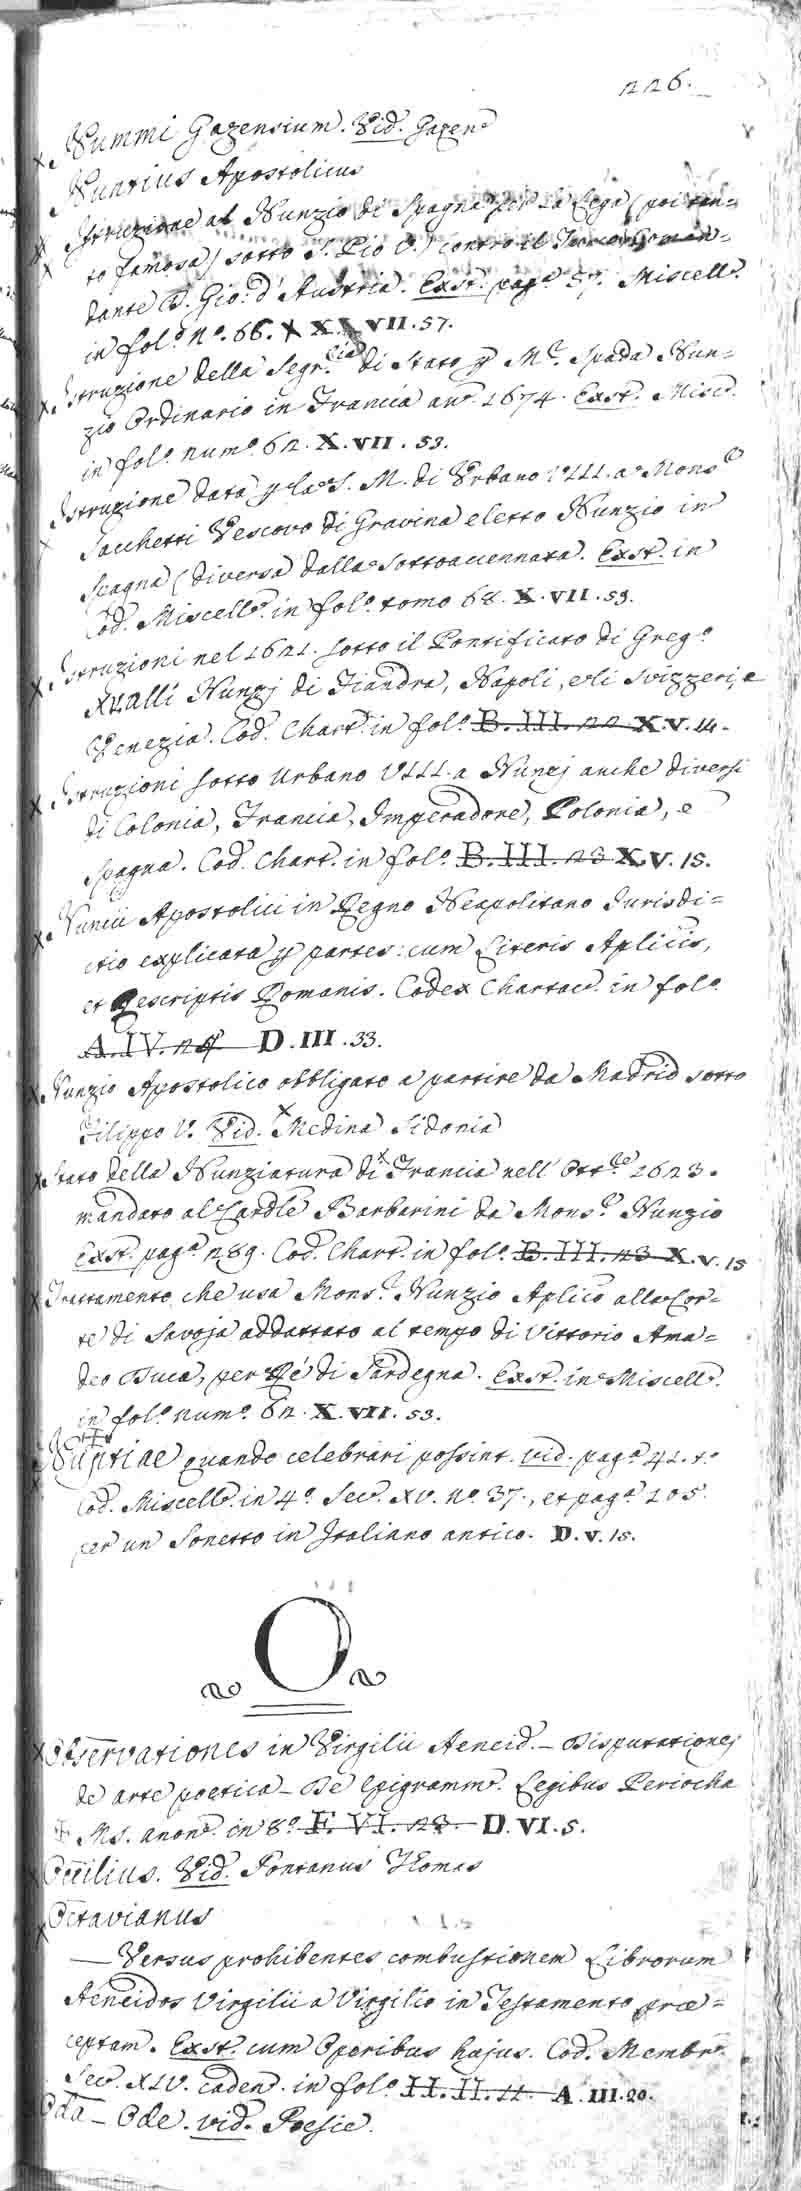 226.
Nummi Gazensium. Vid. Gazen.
Nuntius Apostolicus
Istruzione al Nunzio di Spagna per la Lega (poi tan=
to famosa) sotto S. Pio V.) contro il Coman=
dante D. Gio: d' Austria. Exst. pag.ª 57. Miscell.
in fol.º N.º 66. X.VII.57.
Istruzione della Segr.ria di Stato p M.r Spada Nun=
zio Ordinario in Francia an.º 1674. Exst. Misc.
in fol.º num.º 62. X.VII.53.
Istruzione data p la S. M. di Urbano VIII. a Mons.e
Sacchetti Vescovo di Gravina eletto Nunzio in
Spagna (diversa dalla sottoaccennata. Exst. in
Cod. Miscell. in fol.º tomo 68. X.VII.59.
Istruzioni nel 1621. sotto il Pontificato di Greg.º
XV. alli Nunzj di Fiandra, Napoli, eli Svizzeri, e
Venezia. Cod. Chart. in fol.º B.III.22 X.V.14.
Istruzioni sotto Urbano VIII. a Nunzj anche diversi
di Colonia, Francia, Imperadore, Polonia, e
Spagna. Cod. Chart. in fol.º B.III.23 X.V.15.
Nuncii Apostolici in Regno Neapolitano Jurisdi=
ctio explicata p partes: cum Literis Aplicis,
et Rescriptis Romanis. Codex Chartac. in fol.º
A.IV.24 D.III.33.
Nunzio Apostolico obbligato a partire da Madrid sotto
Filippo V. Vid. Medina Sidonia
Stato della Nunziatura di Francia nell' Ott.re 1623.
mandato al Cardle Barberini da Mons.e Nunzio
Exst. pag.ª 289. Cod. Chart. in fol.º B.III.23 X.V.15
Trattamento che usa Mons.r Nunzio Aplico alla Cor=
te di Savoja addattato al tempo di Vittorio Ama=
deo Duca, per Rè di Sardegna. Exst. in Miscell.
in fol.º num.º 62. X.VII.53.
Nuptiae quando celebrari possint. vid. pag.ª 41. t.º
Cod. Miscell. in 4.º Sec. XV. N.º 37., et pag.ª 105.
per un Sonetto in Italiano antico. D.V.15.
O
Observationes in Virgilii Aeneid. — Disputationes
de arte poetica — De Epigramm. Legibus Periocha
Ms. anon. in 8.º F.VI.28. D.VI.5.
Occilius. Vid. Pontanus Thomas
Octavianus
— Versus prohibentes combustionem Librorum
Aeneidos Virgilii a Virgilio in Testamento præ=
ceptam. Exst. cum Operibus hujus. Cod. Membr.
Sec. XIV. caden. in fol.º H.II.11. A.III.20.
Oda — Ode. vid. Poesie.